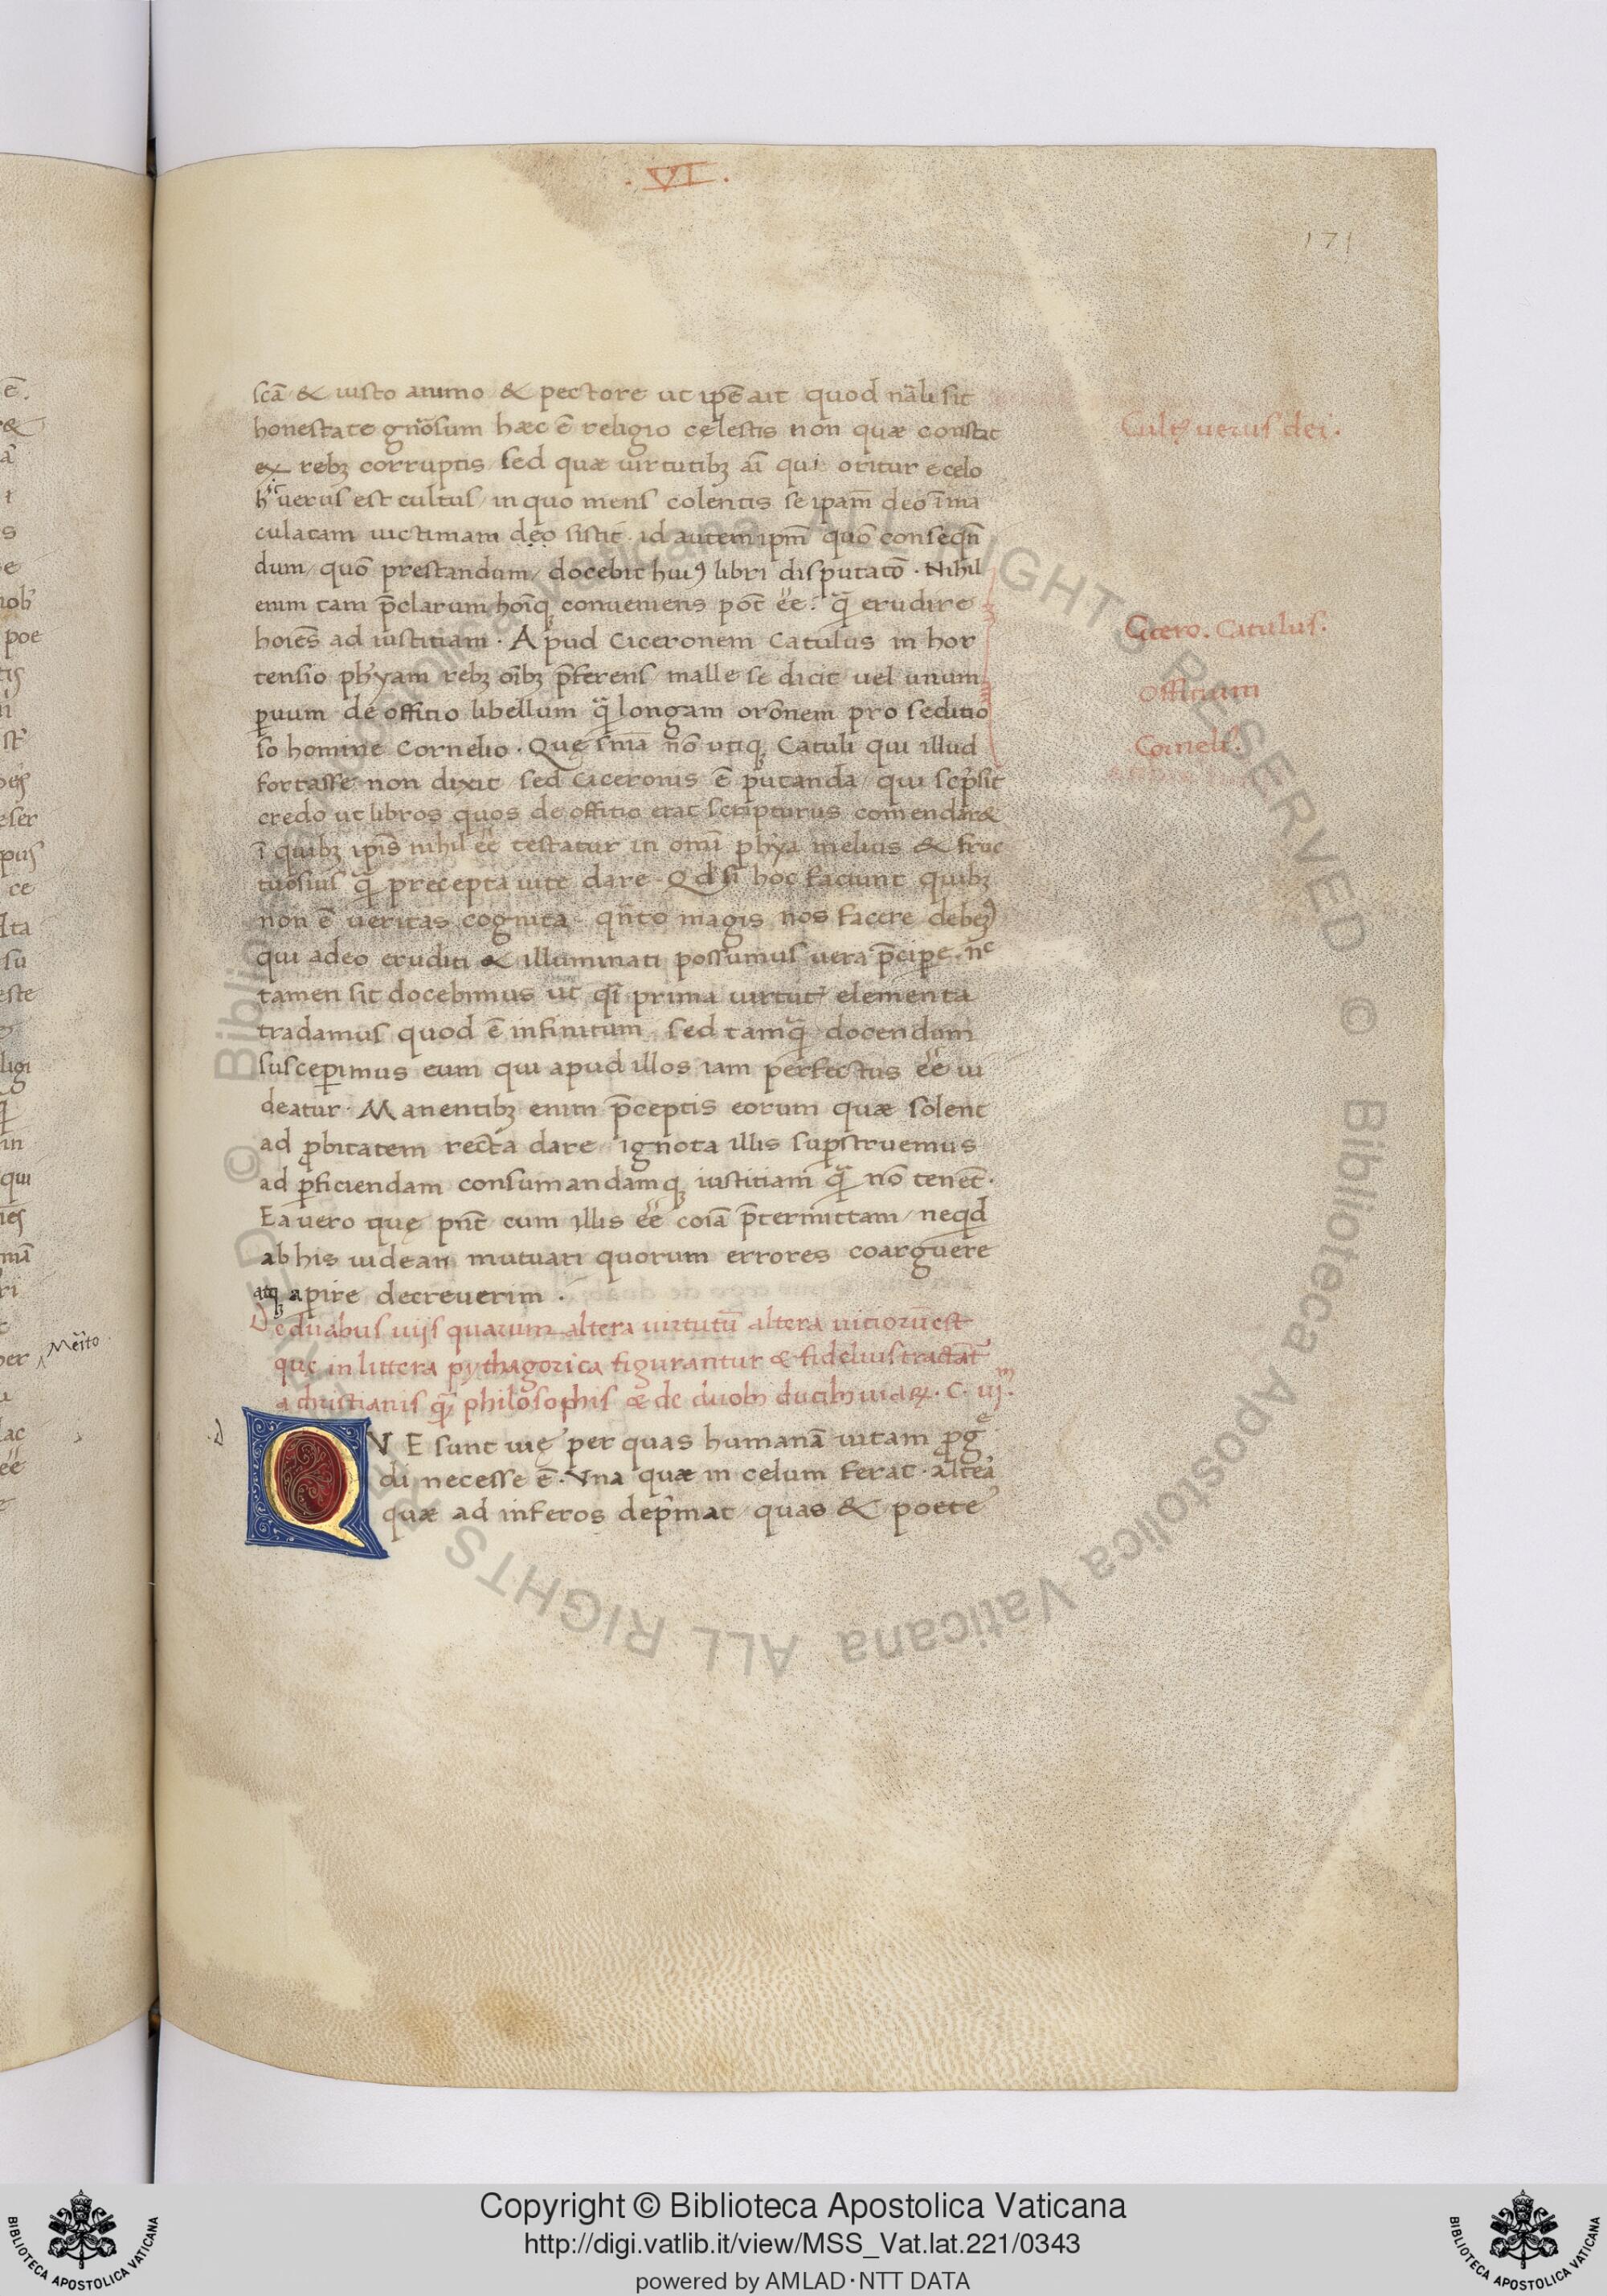 .VI.
171
scā & iusto animo & pectore ut ip̄e ait quod nāli sit
honestate gn̄osum hæc ē religio cęlestis non quæ constat
ex rebꝫ corruptis / sed quæ uirtutibꝫ aī qui oritur e celo
hic uerus est cultus / in quo mens colentis se ipam̄ deo īma
culatam uictimam deo sistit . id autem ipm̄ quō conseqn̄
dum / quō prestandum / docebit huiꝰ libri disputatō . Nihil
enim tam p̄clarum hoīqꝫ conueniens pōt ēē . quā erudire
hoīes ad iustitiam . Apud Ciceronem Catulus in hor
tensio phyam rebꝫ oībꝫ p̄ferens / malle se dicit uel unum
ꝑuum de offitio libellum quā longam orōnem pro seditio
so homine Cornelio . Quę sn̄ia nō utiqꝫ Catuli qui illud
fortasse non dixit sed Ciceronis ē putanda / qui scp̄sit
credo ut libros quos de offitio erat scripturus com̄endar&
ī quibꝫ ipīs nihil ēē testatur in omī phya melius & fruc
tuosius quā precepta uite dare . Qd si hoc faciunt quibꝫ
non ē ueritas cognita . qn̄to magis nos facere debemꝰ
qui adeo eruditi & illuminati possumus uera p̄cipe . nc̄
tamen sic docebimus ut qi prima uirtut elementa
tradamus quod ē infinitum . sed tamqā docendum
suscepimus eum qui apud illos iam perfectus ēē ui
deatur . Manentibꝫ enim p̄ceptis eorum quæ solent
ad ꝓbitatem recta dare ignota illis suꝑstruemus
ad ꝑficiendam consumandamqꝫ iustitiam quā nō tenēt .
Ea uero quę pn̄t cum illis ēē coīa p̄termittam / neqd
ab his uidear mutuari quorum errores coarguere
atqꝫ aꝑire decreuerim .
De duabus uijs quarum altera uirtutū altera uitiorū est
que in littera pythagorica figurantur & fidelius tractāt
a christianis quā philosophis & de duobꝫ ducibꝫ uiaꝝ . C. iijᵐ.
.d
QVE sunt uię per quas humanā uitam ꝓge
di necesse ē . Vna quæ in celum ferat . altera
quæ ad inferos dep̄mat / quas & poete
Cultꝰ uerus dei .
Cicero. Catulus.
offitium
Corneli⁹.
Mēito
Copyright © Biblioteca Apostolica Vaticana
http://digi.vatlib.it/view/MSS_Vat.lat.221/0343
powered by AMLAD·NTT DATA
BIBLIOTECA APOSTOLICA VATICANA
BIBLIOTECA APOSTOLICA VATICANA